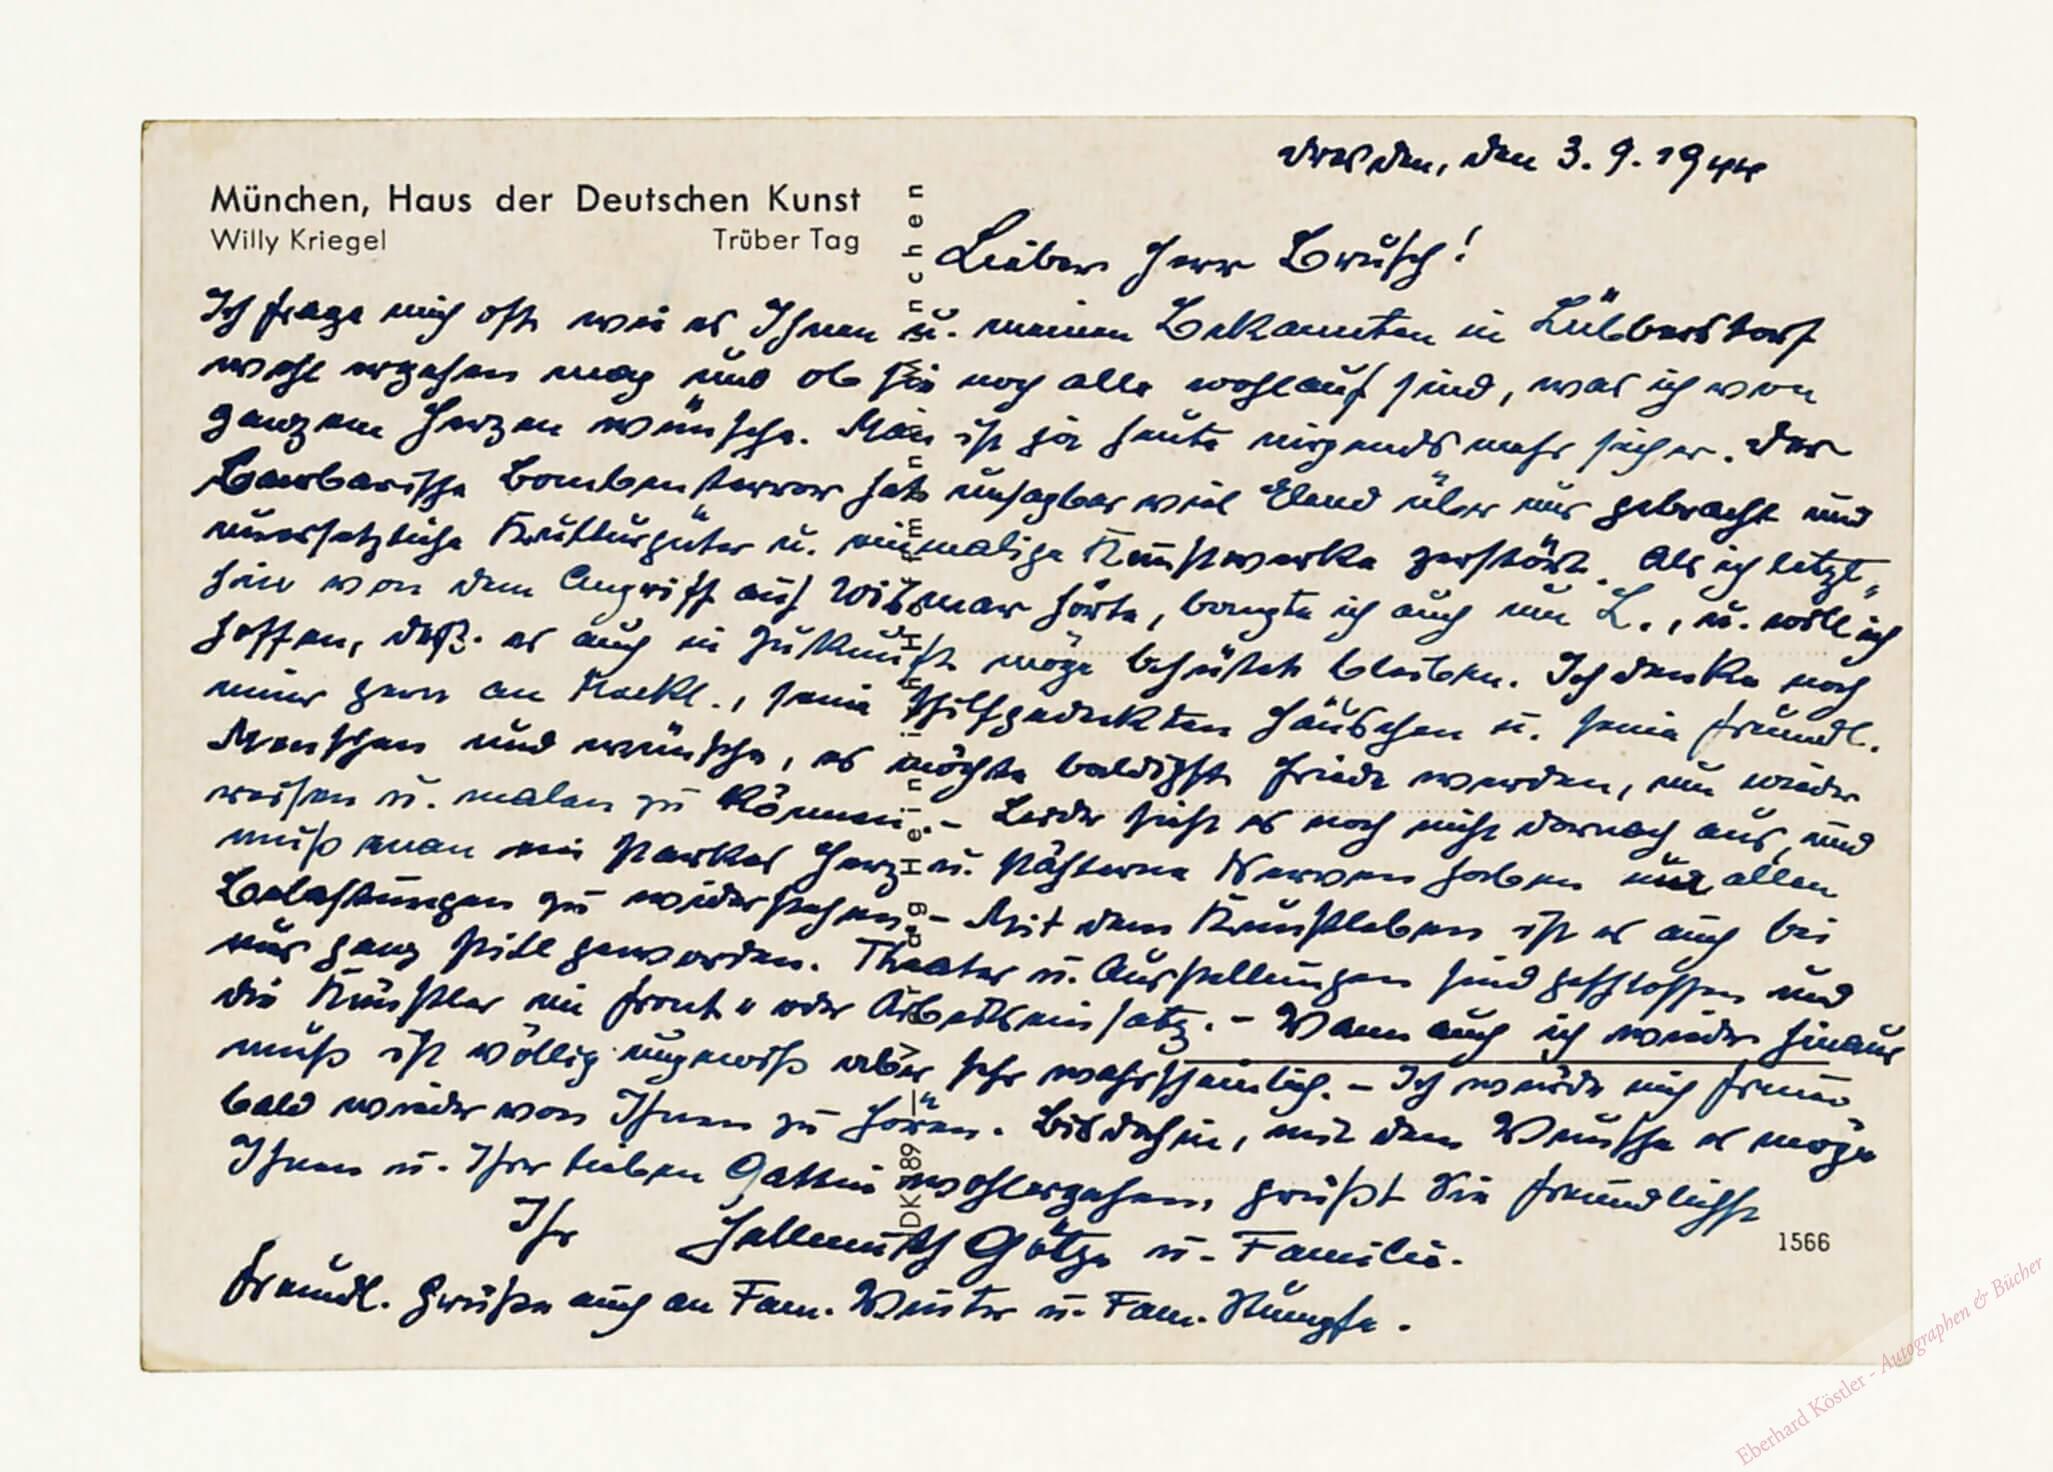 Dresden, den 3.9.1944
München, Haus der Deutschen Kunst
Willy Kriegel Trüber Tag
Lieber Herr Brüsch!
Ich frage mich oft wie es Ihnen u. meinen Bekannten in Lübberstorf
wohl ergehen mag und ob sie noch alle wohlauf sind, was ich von
ganzem Herzen wünsche. Man ist ja heute nirgends mehr sicher. Der
barbarische Bombenterror hat unsagbar viel Elend über uns gebracht und
unersetzliche Kulturgüter u. einmalige Kunstwerke zerstört. Als ich letzt-
hin von dem Angriff auf Wismar hörte, bangte ich auch um L., u. will ich
hoffen, daß es auch in Zukunft möge behütet bleiben. Ich denke noch
immer gern an Meckl., seine schilfgedeckten Häuschen u. seine freundl.
Menschen und wünsche, es möchte baldigst Friede werden, um wieder
reisen u. malen zu können. – Leider sieht es noch nicht darnach aus, und
muß man ein starkes Herz u. stählerne Nerven haben um allen
Belastungen zu widerstehen. – Mit dem Kunstleben ist es auch bei
uns ganz still geworden. Theater u. Ausstellungen sind geschlossen und
die Künstler im Front- oder Arbeitseinsatz. – Wann auch ich wieder hinaus
muß ist völlig ungewiß aber sehr wahrscheinlich. – Ich würde mich freuen,
bald wieder von Ihnen zu hören. Bis dahin, mit dem Wunsche es möge
Ihnen u. Ihrer lieben Gattin wohlergehen, grüßt Sie freundlichst
Ihr Hellmuth Götze u. Familie.
Freundl. Grüße auch an Fam. Winter u. Fam. Stumpfe.
HDK 89 – Verlag Heinrich Hoffmann, München
1566
Eberhard Köstler - Autographen & Bücher